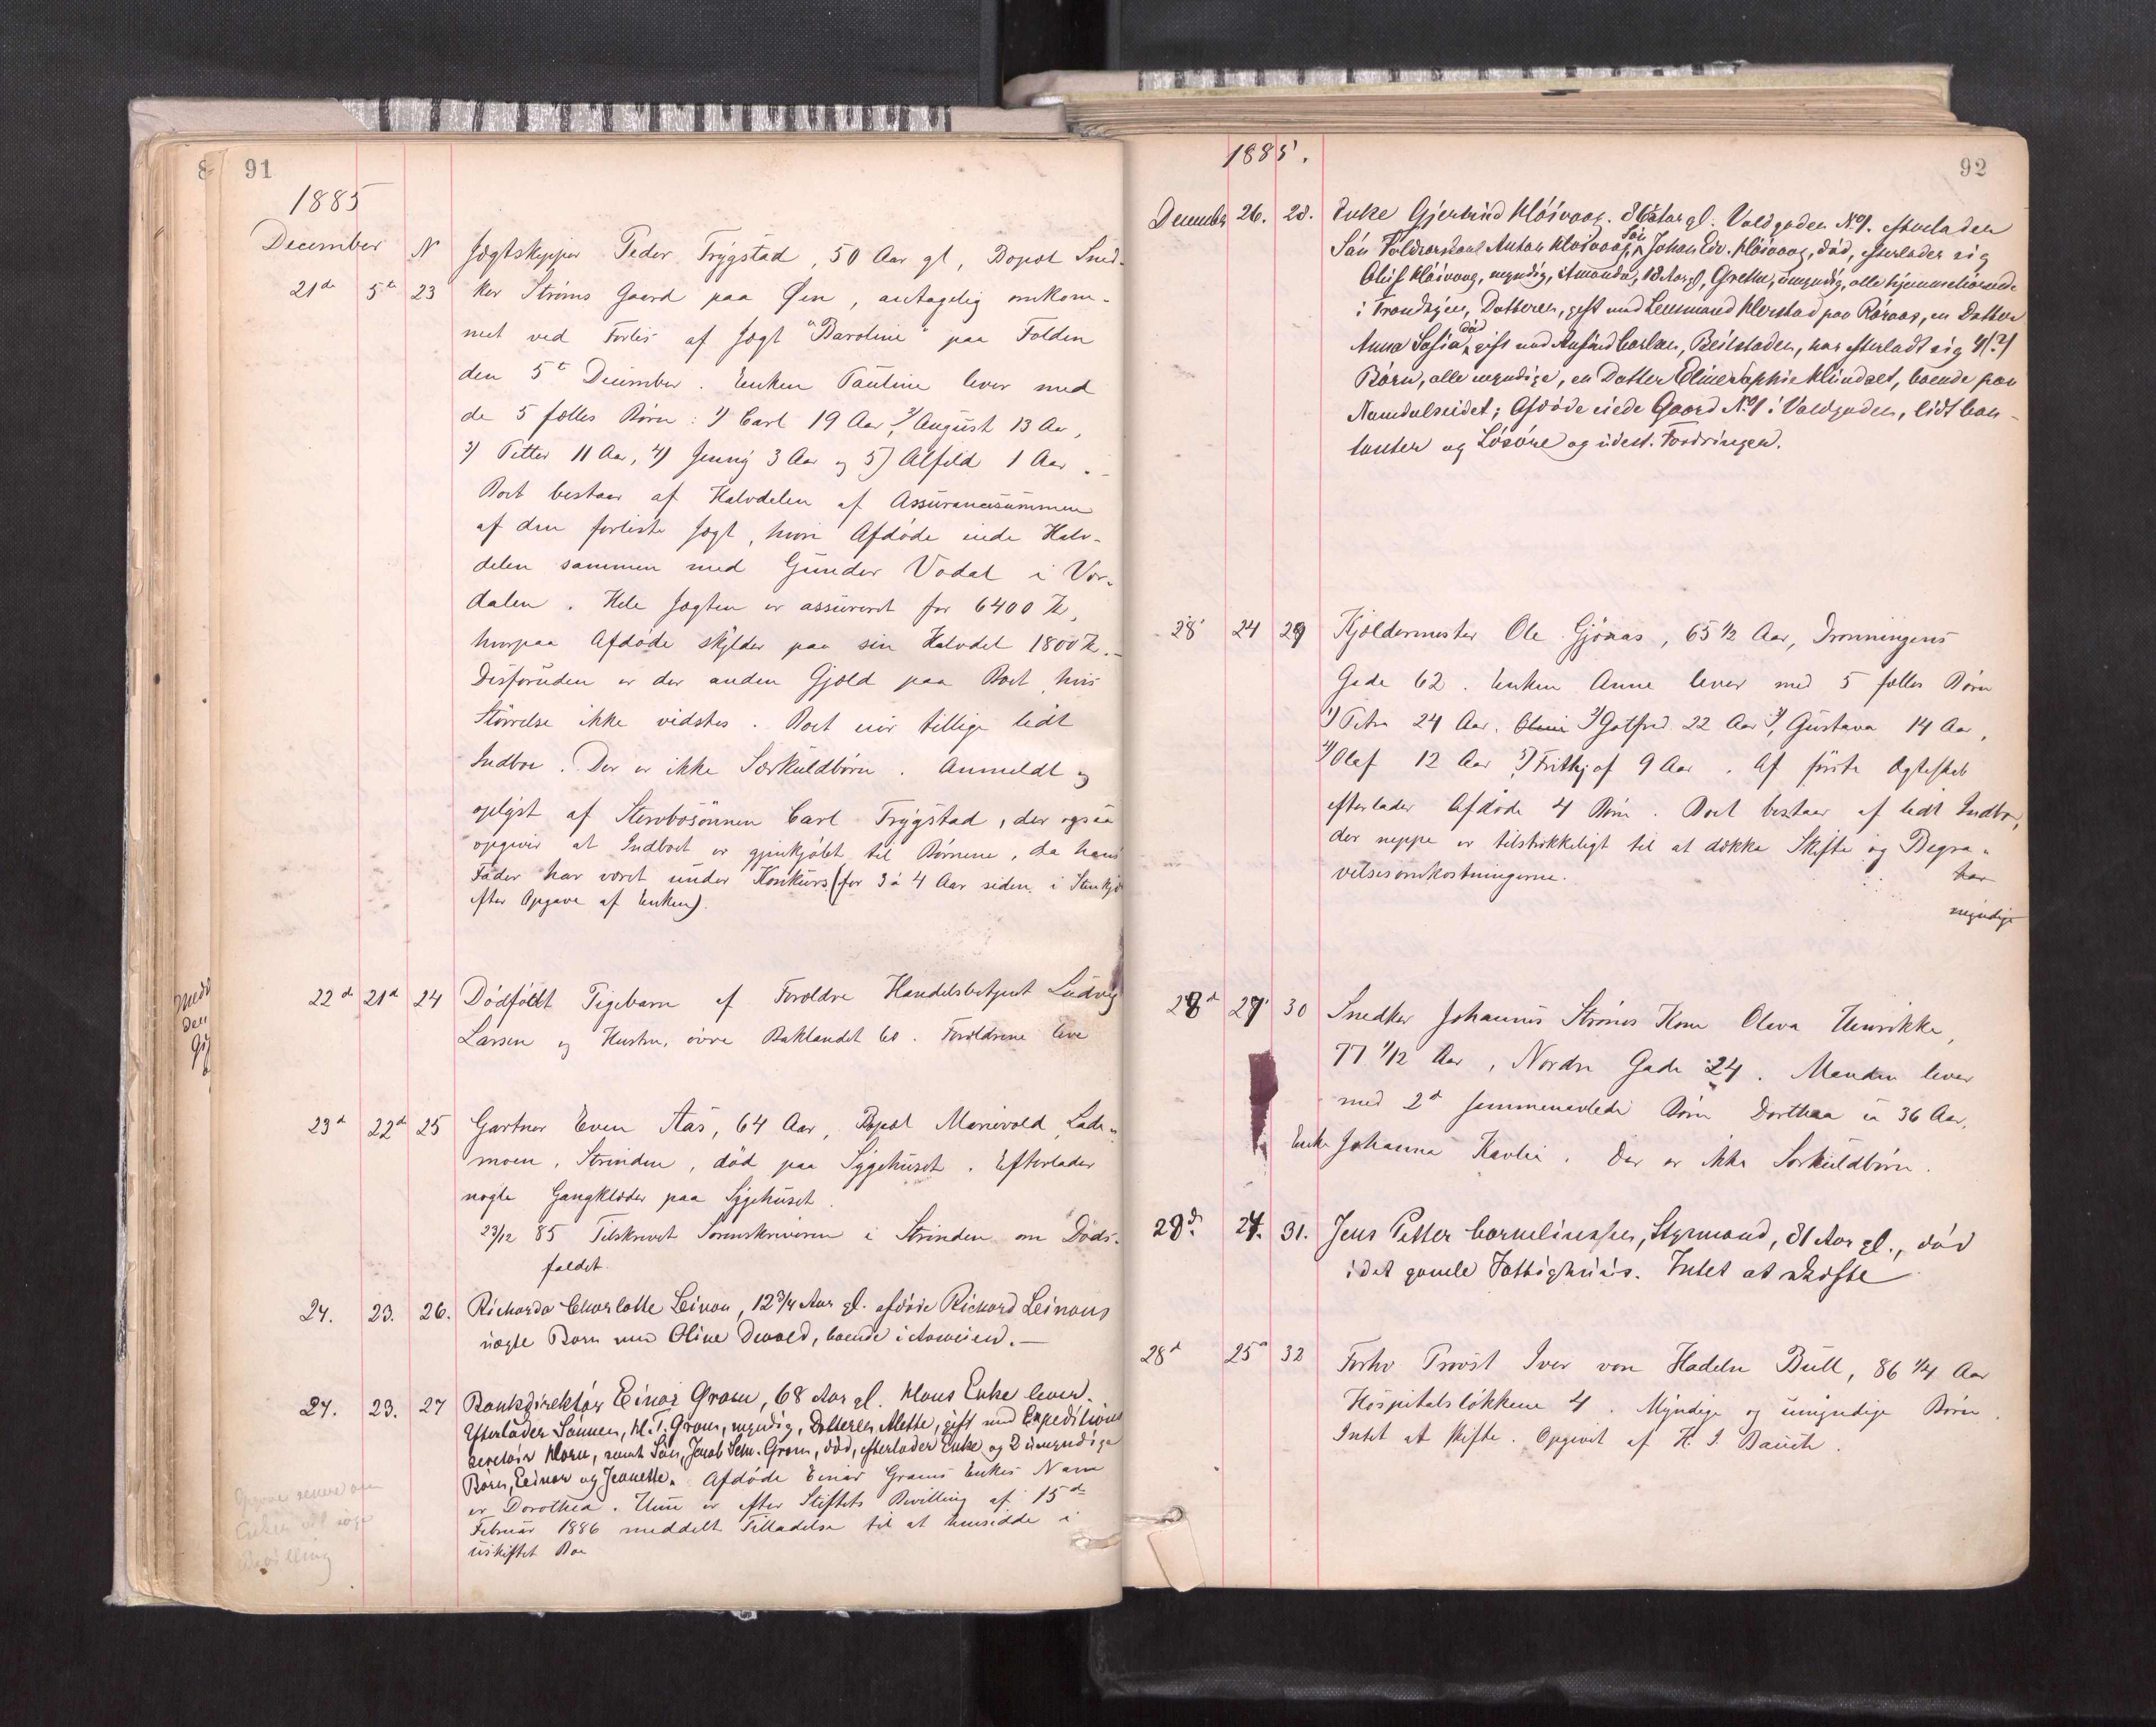 91
1885
December N Jægtskipper Peder Trygstad, 50 Aar gl, Bopæl Sned-
21de 5te 23 ker Strøms Gaard paa Øen, antagelig omkom-
met ved Forlis af Jægt "Baroline" paa Folden
den 5te December. Enken Pauline lever med
de 5 fælles Børn: 1) Carl 19 Aar, 2) August 13 Aar,
3) Petter 11 Aar, 4) Jenny 3 Aar og 5) Alfild 1 Aar.
Boet bestaar af Halvdelen af Assurancesummen
af den forliste Jægt, hvori Afdøde eiede Halv-
delen sammen med Gunder Vodal i Vær-
dalen. Hele Jægten er assureret for 6400 Kr,
hvorpaa Afdøde skylder paa sin Halvdel 1800 Kr.
Desforuden er der anden Gjæld paa Boet, hvis
Størrelse ikke vidstes. Boet eier tillige lidt
Indbo. Der er ikke Særkuldbørn. Anmeldt og
oplyst af Stervbosønnen Carl Trygstad, der ogsaa
opgiver at Indboet er gjenkjøbt til Børnene, da hans
Fader har været under Konkurs (for 3 à 4 Aar siden i Stenkjær
efter Opgave af Enken).
22d 21d 24 Dødfødt Pigebarn af Forældre Handelsbetjent Ludvig
Larsen og Hustru, øvre Baklandet 60. Forældrene leve
23d 22d 25 Gartner Even Aas, 64 Aar, Bopæl Marievold, Lade-
moen, Strinden, død paa Sygehuset. Efterlader
nogle Gangklæder paa Sygehuset.
23/12 85 Tilskrevet Sorenskriveren i Strinden om Døds-
faldet.
24. 23. 26. Richarda Charlotte Leinan, 12 3/4 Aar gl. afdøde Richard Leinans
uægte Barn med Oline Devold, boende i Aaveien.
24. 23. 27 Bankdirektør Einar Gram, 68 Aar gl. Hans Enke lever.
Efterlader Sønnen, H. T. Gram, myndig, Datteren Mette, gift med Expeditions
secretair Horn, samt Søn, Jacob Schw. Gram, død, efterlader Enke og 2 umyndige
Børn, Einar og Jeanette. Afdøde Einar Grams Enkes Navn
er Dorothea. Hun er efter Stiftets Bevilling af 15de
Februar 1886 meddelt Tilladelse til at hensidde i
uskiftet Bo
Opgave senere om
Enken vil søge
Bevilling
92
1885.
December 26. 28. Enke Gjertrud Kløivaag. 86 Aar gl. Voldgaden No 1. efterlader
Søn Toldvorskarl Anton Kløivaag, Søn Johan Edv. Kløivaag, død, efterlader sig
Oluf Kløivaag, myndig, Amanda, 18 Aar gl, Grethe, umyndig, alle hjemmehørende
i Trondhjem, Datteren, gift med Lensmand Klerstad paa Røraas, en Datter
Anna Sofia død gift med Carlsen, Beitstaden, har efterladt sig 4(?)
Børn, alle myndige, en Datter boende paa
Namdalseidet; Afdøde eiede Gaard No 1 i Voldgaden, lidt Con-
tanter og Løsøre og udest. Fordringer.
28 24 29 Kjældermester Ole Gjønas, 65 1/2 Aar, Dronningens
Gade 62. Enken Anne lever med 5 fælles Børn
1) Petra 24 Aar, 2) Gotfred 22 Aar 3) Gustava 14 Aar,
4) Olaf 12 Aar 5) Frithjof 9 Aar. Af første Ægteskab
efterlader Afdøde 4 Børn. Boet bestaar af lidt Indbo,
der neppe er tilstrækkeligt til at dække Skifte og Begra-
velsesomkostningerne. har
myndige
28d 27 30 Snedker Johannes Strøms Kone Oleva Henrikke,
77 1/12 Aar, Nordre Gade 24. Manden lever
med 2d sammenavlede Børn Dorthea er 36 Aar,
Enke Johanna Kavlie. Der er ikke Særkuldbørn.
29d. 27. 31. Jens Petter Corneliussen, Styrmand, 81 Aar gl., død
i det gamle Fattighuus. Intet at skifte
28d 25d 32 Forhv Provst Iver von Hadeln Bull, 86 1/4 Aar
Hospitalsløkkene 4. Myndige og umyndige Børn.
Intet at skifte. Opgivet af H. J. Bauck.